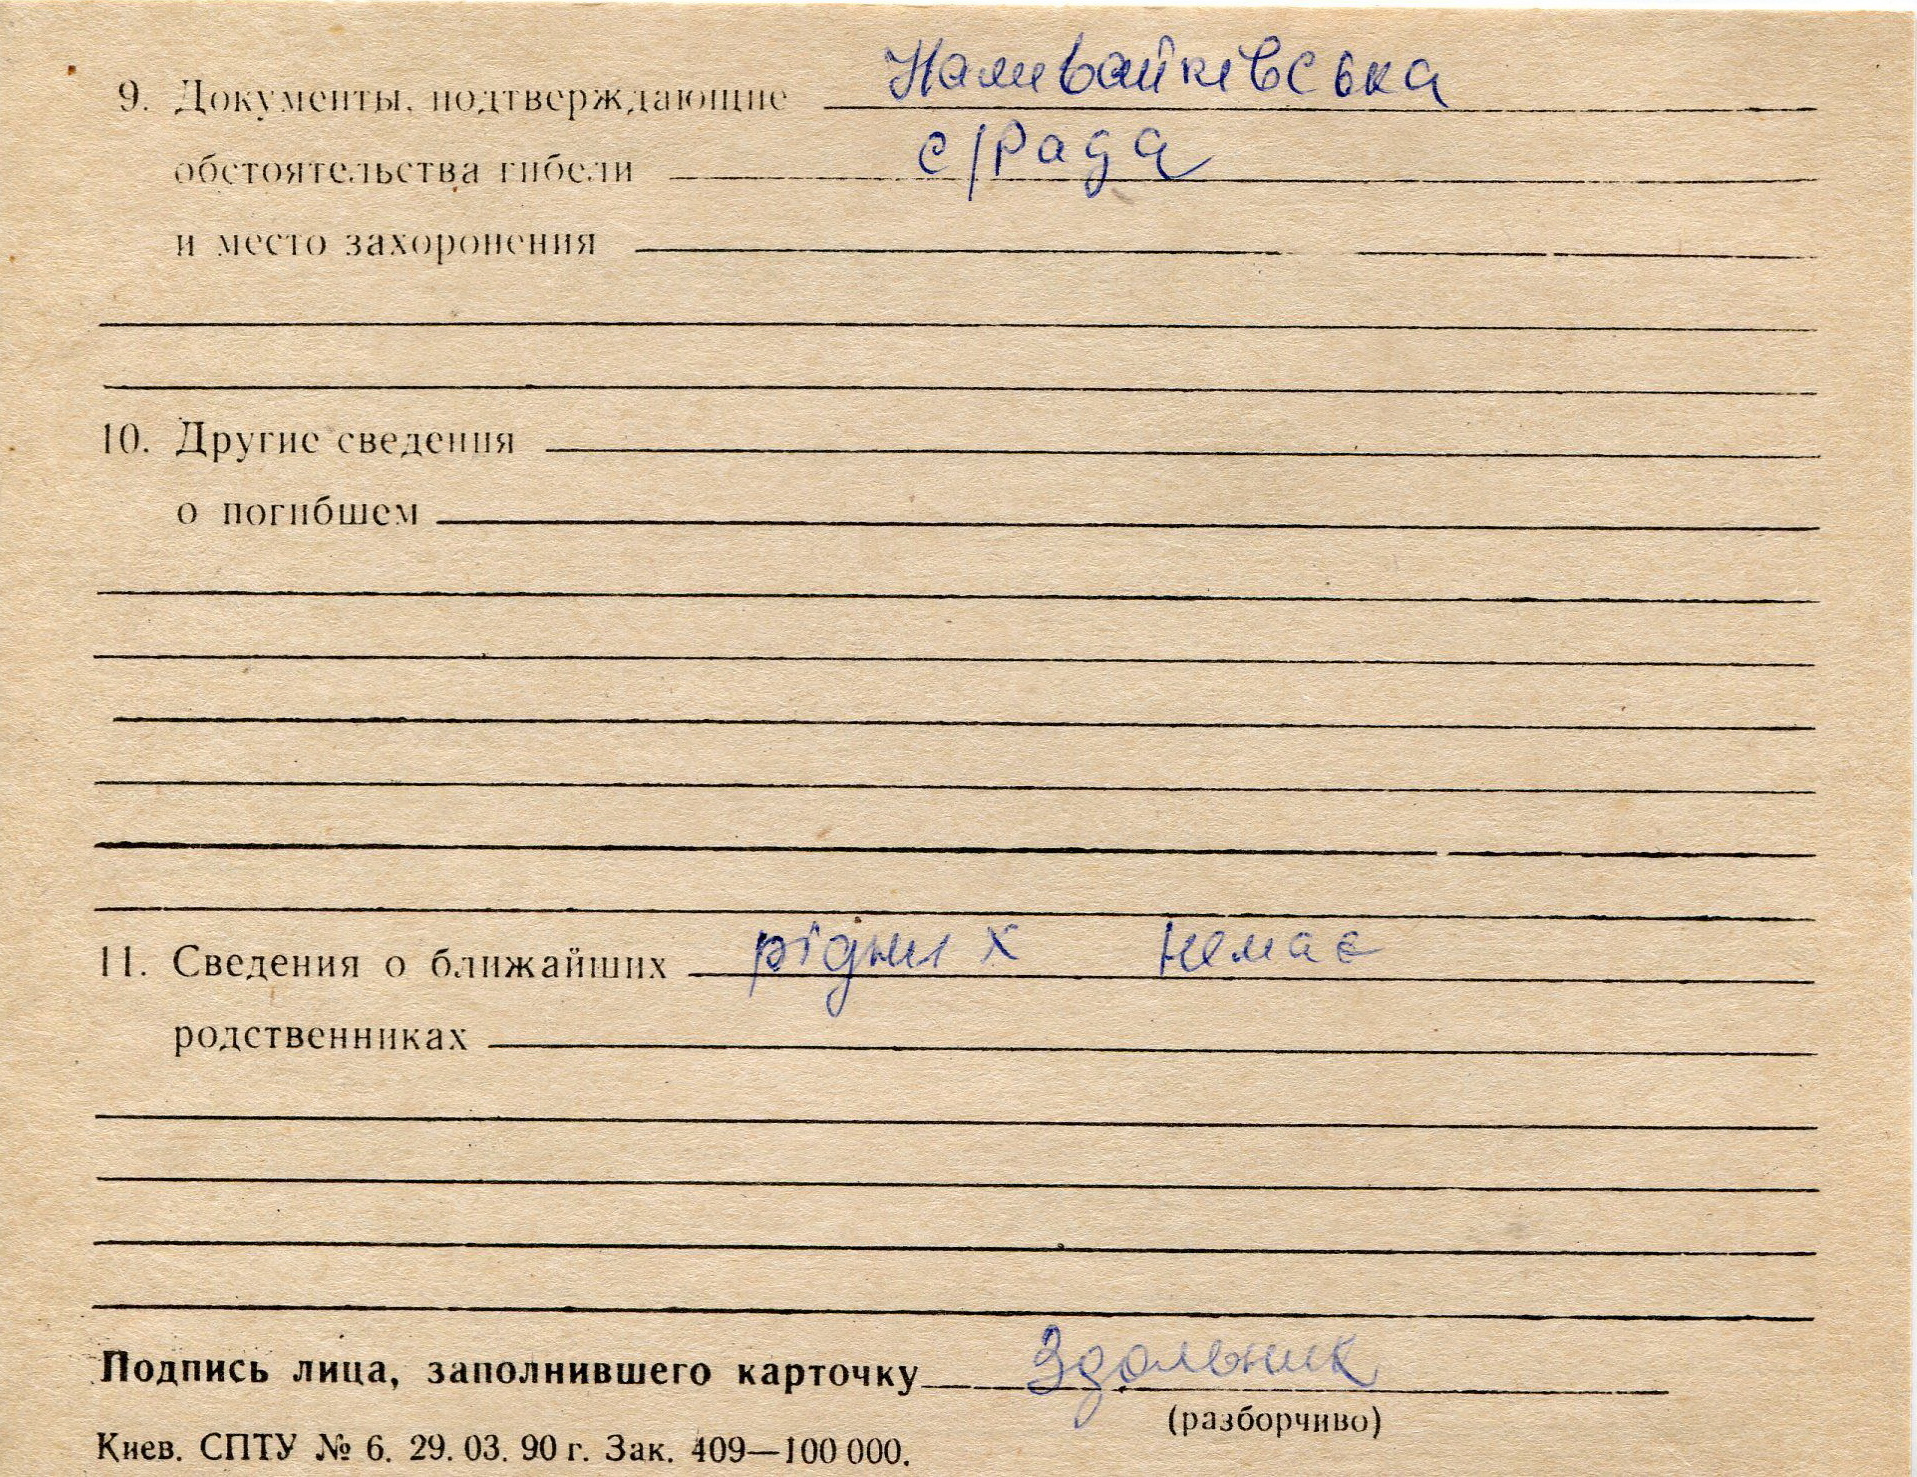 9. Документы, подтверждающие Наливайківська
обстоятельства гибели с/Рада
и место захоронения
10. Другие сведения
о погибшем
11. Сведения о ближайших рідних немає
родственниках
Подпись лица, заполнившего карточку Здольник
(разборчиво)
Киев. СПТУ № 6. 29. 03. 90 г. Зак. 409—100 000.